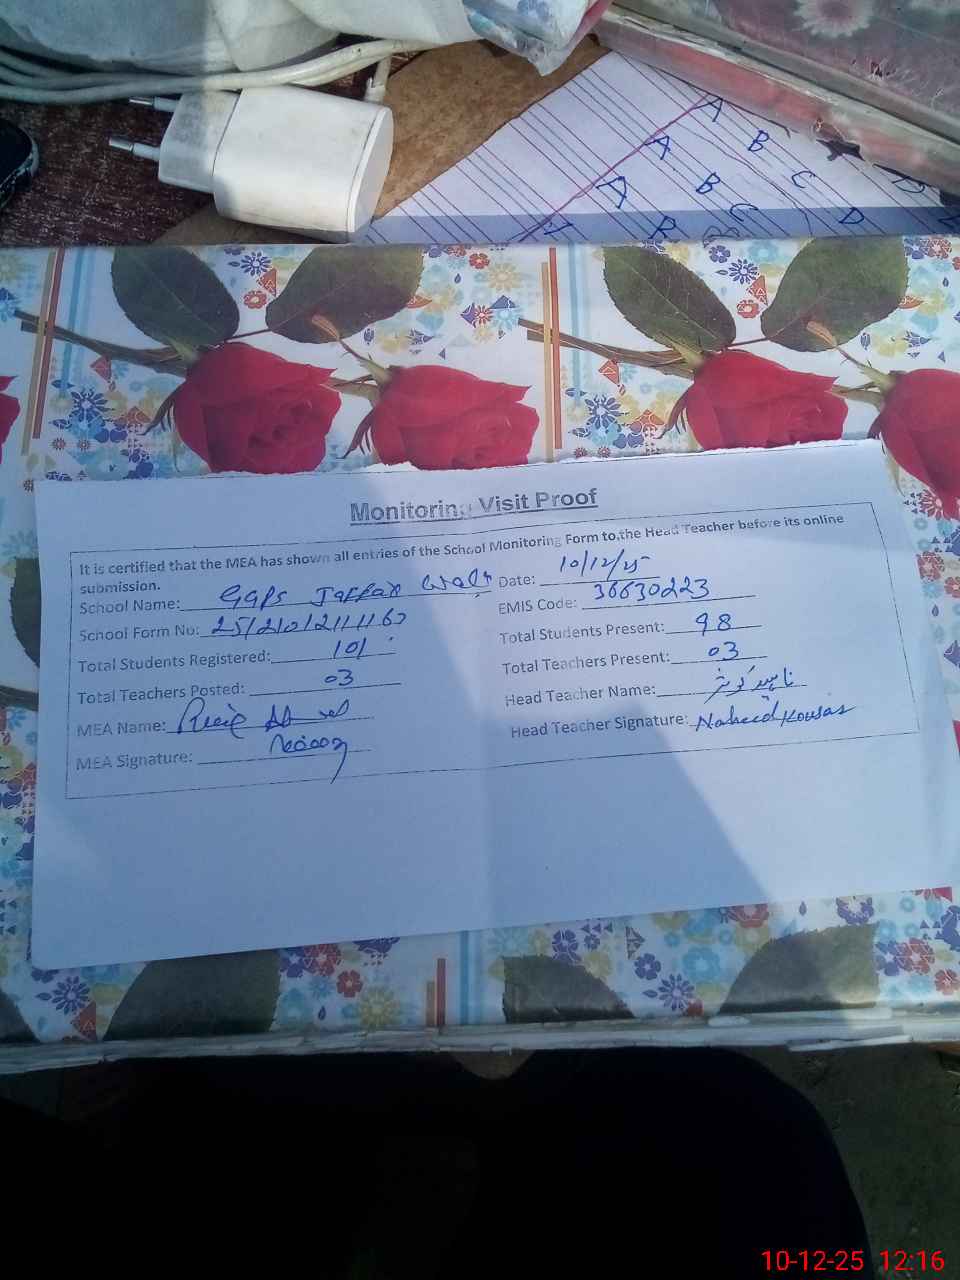 A
A B
A B C D
A B C D
Monitoring Visit Proof
It is certified that the MEA has shown all entries of the School Monitoring Form to the Head Teacher before its online
submission.
School Name: GGPS Jaffar Wali Date: 10/12/25
School Form No: EMIS Code: 36630223
Total Students Registered: 101 Total Students Present: 98
Total Teachers Posted: 03 Total Teachers Present: 03
MEA Name: Head Teacher Name: ناہید کوثر
MEA Signature: Head Teacher Signature: Naheed Kousar
10-12-25 12:16